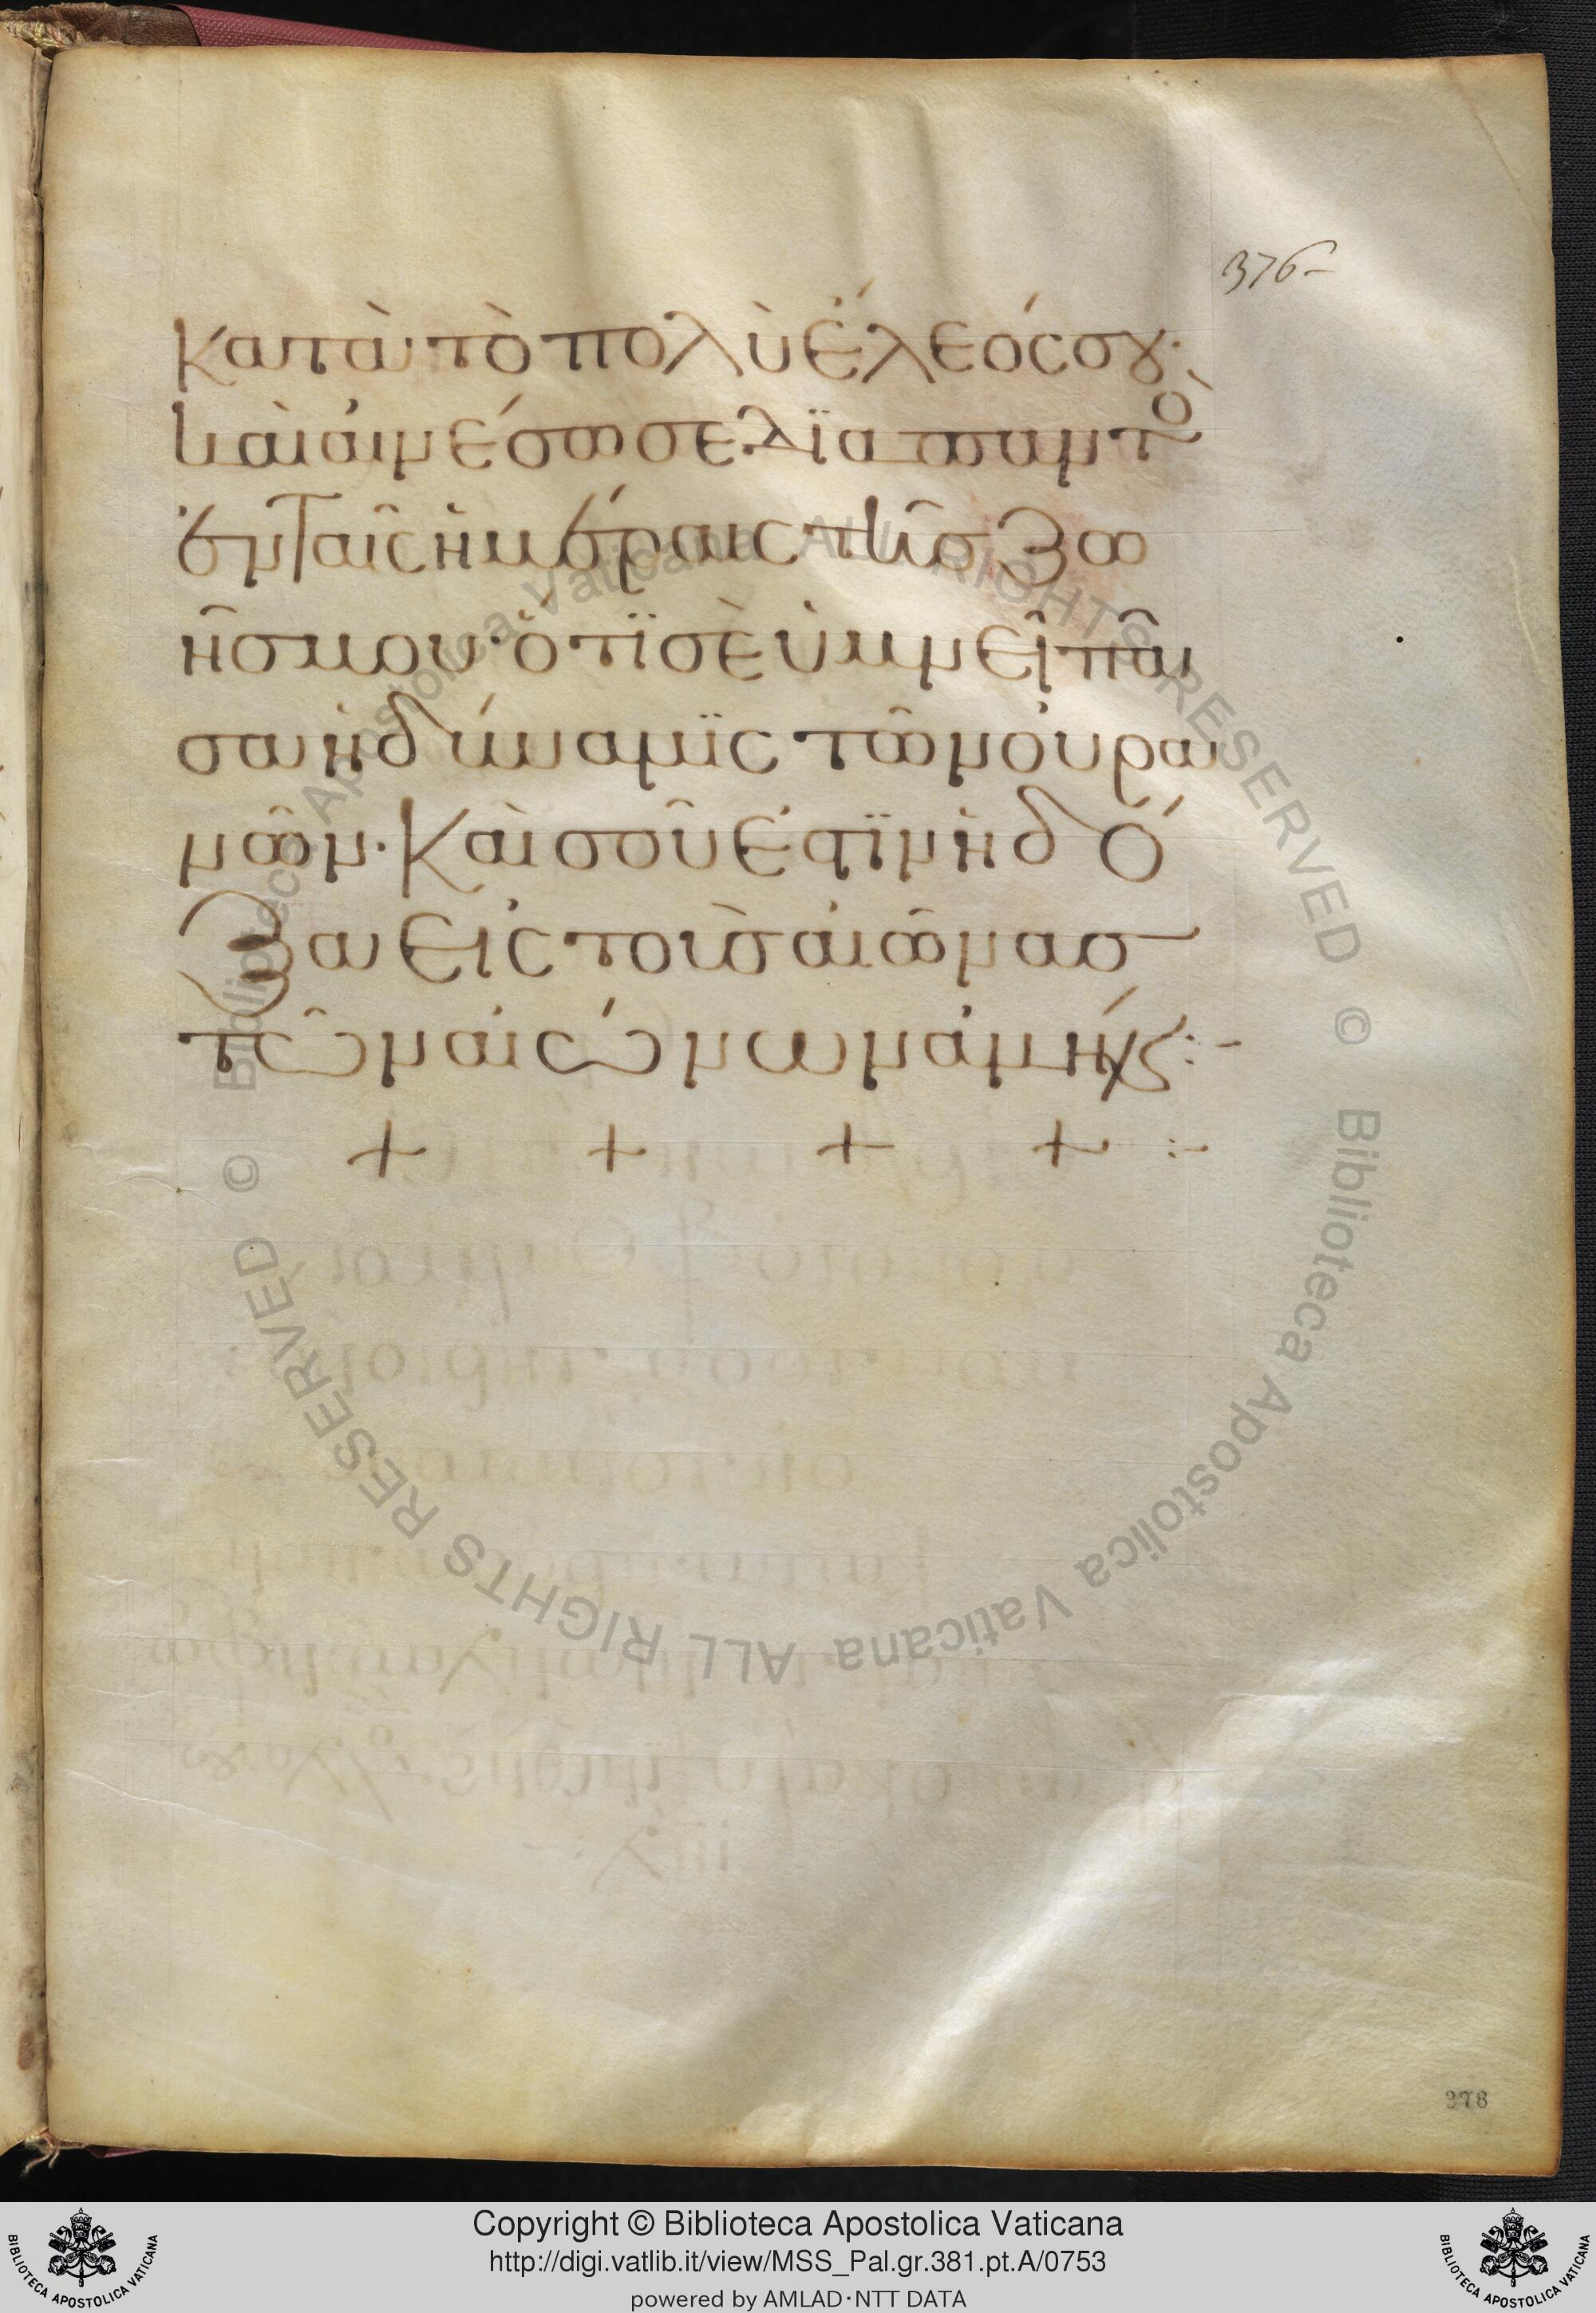 376
κατὰ τὸ πολὺ ἔλεός σου·
καὶ αἰνέσω σε διαπαντὸ
ἐν ταῖς ἡμέραις τῆσ ζω
ῆσ μου· ὅτϊ σὲ ὑμνεῖ πᾶ
σα ἡ δύναμϊς τῶν οὐρα
νῶν· Καὶ σοῦ ἐστϊν ἡ δό
ξα εἰς τοὺσ αἰῶνασ
τῶν αἰώνων ἀμήν:-
+ + + + :-
378
Copyright © Biblioteca Apostolica Vaticana
http://digi.vatlib.it/view/MSS_Pal.gr.381.pt.A/0753
powered by AMLAD·NTT DATA
BIBLIOTECA APOSTOLICA VATICANA
BIBLIOTECA APOSTOLICA VATICANA
© Biblioteca Apostolica Vaticana ALL RIGHTS RESERVED
© Biblioteca Apostolica Vaticana ALL RIGHTS RESERVED